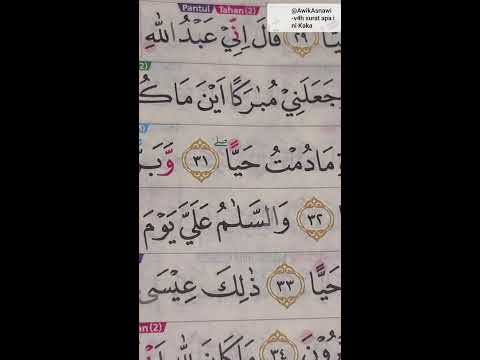 Pantul Tahan (2)
@AwikAsnawi
-v4h surat spa i
ni Kaka
يًّا ٢٩ قَالَ اِنِّيْ عَبْدُ اللّٰهِ
(2)
جَعَلَنِيْ مُبٰرَكًا اَيْنَ مَا كُ
مَا دُمْتُ حَيًّا ۖ ٣١ وَّبَرًّ
٣٢ وَالسَّلٰمُ عَلَيَّ يَوْمَ
حَيًّا ٣٣ ذٰلِكَ عِيْسَى
an (2)
رُوْنَ ٣٤ مَا كَانَ لِلّٰهِ اَنْ